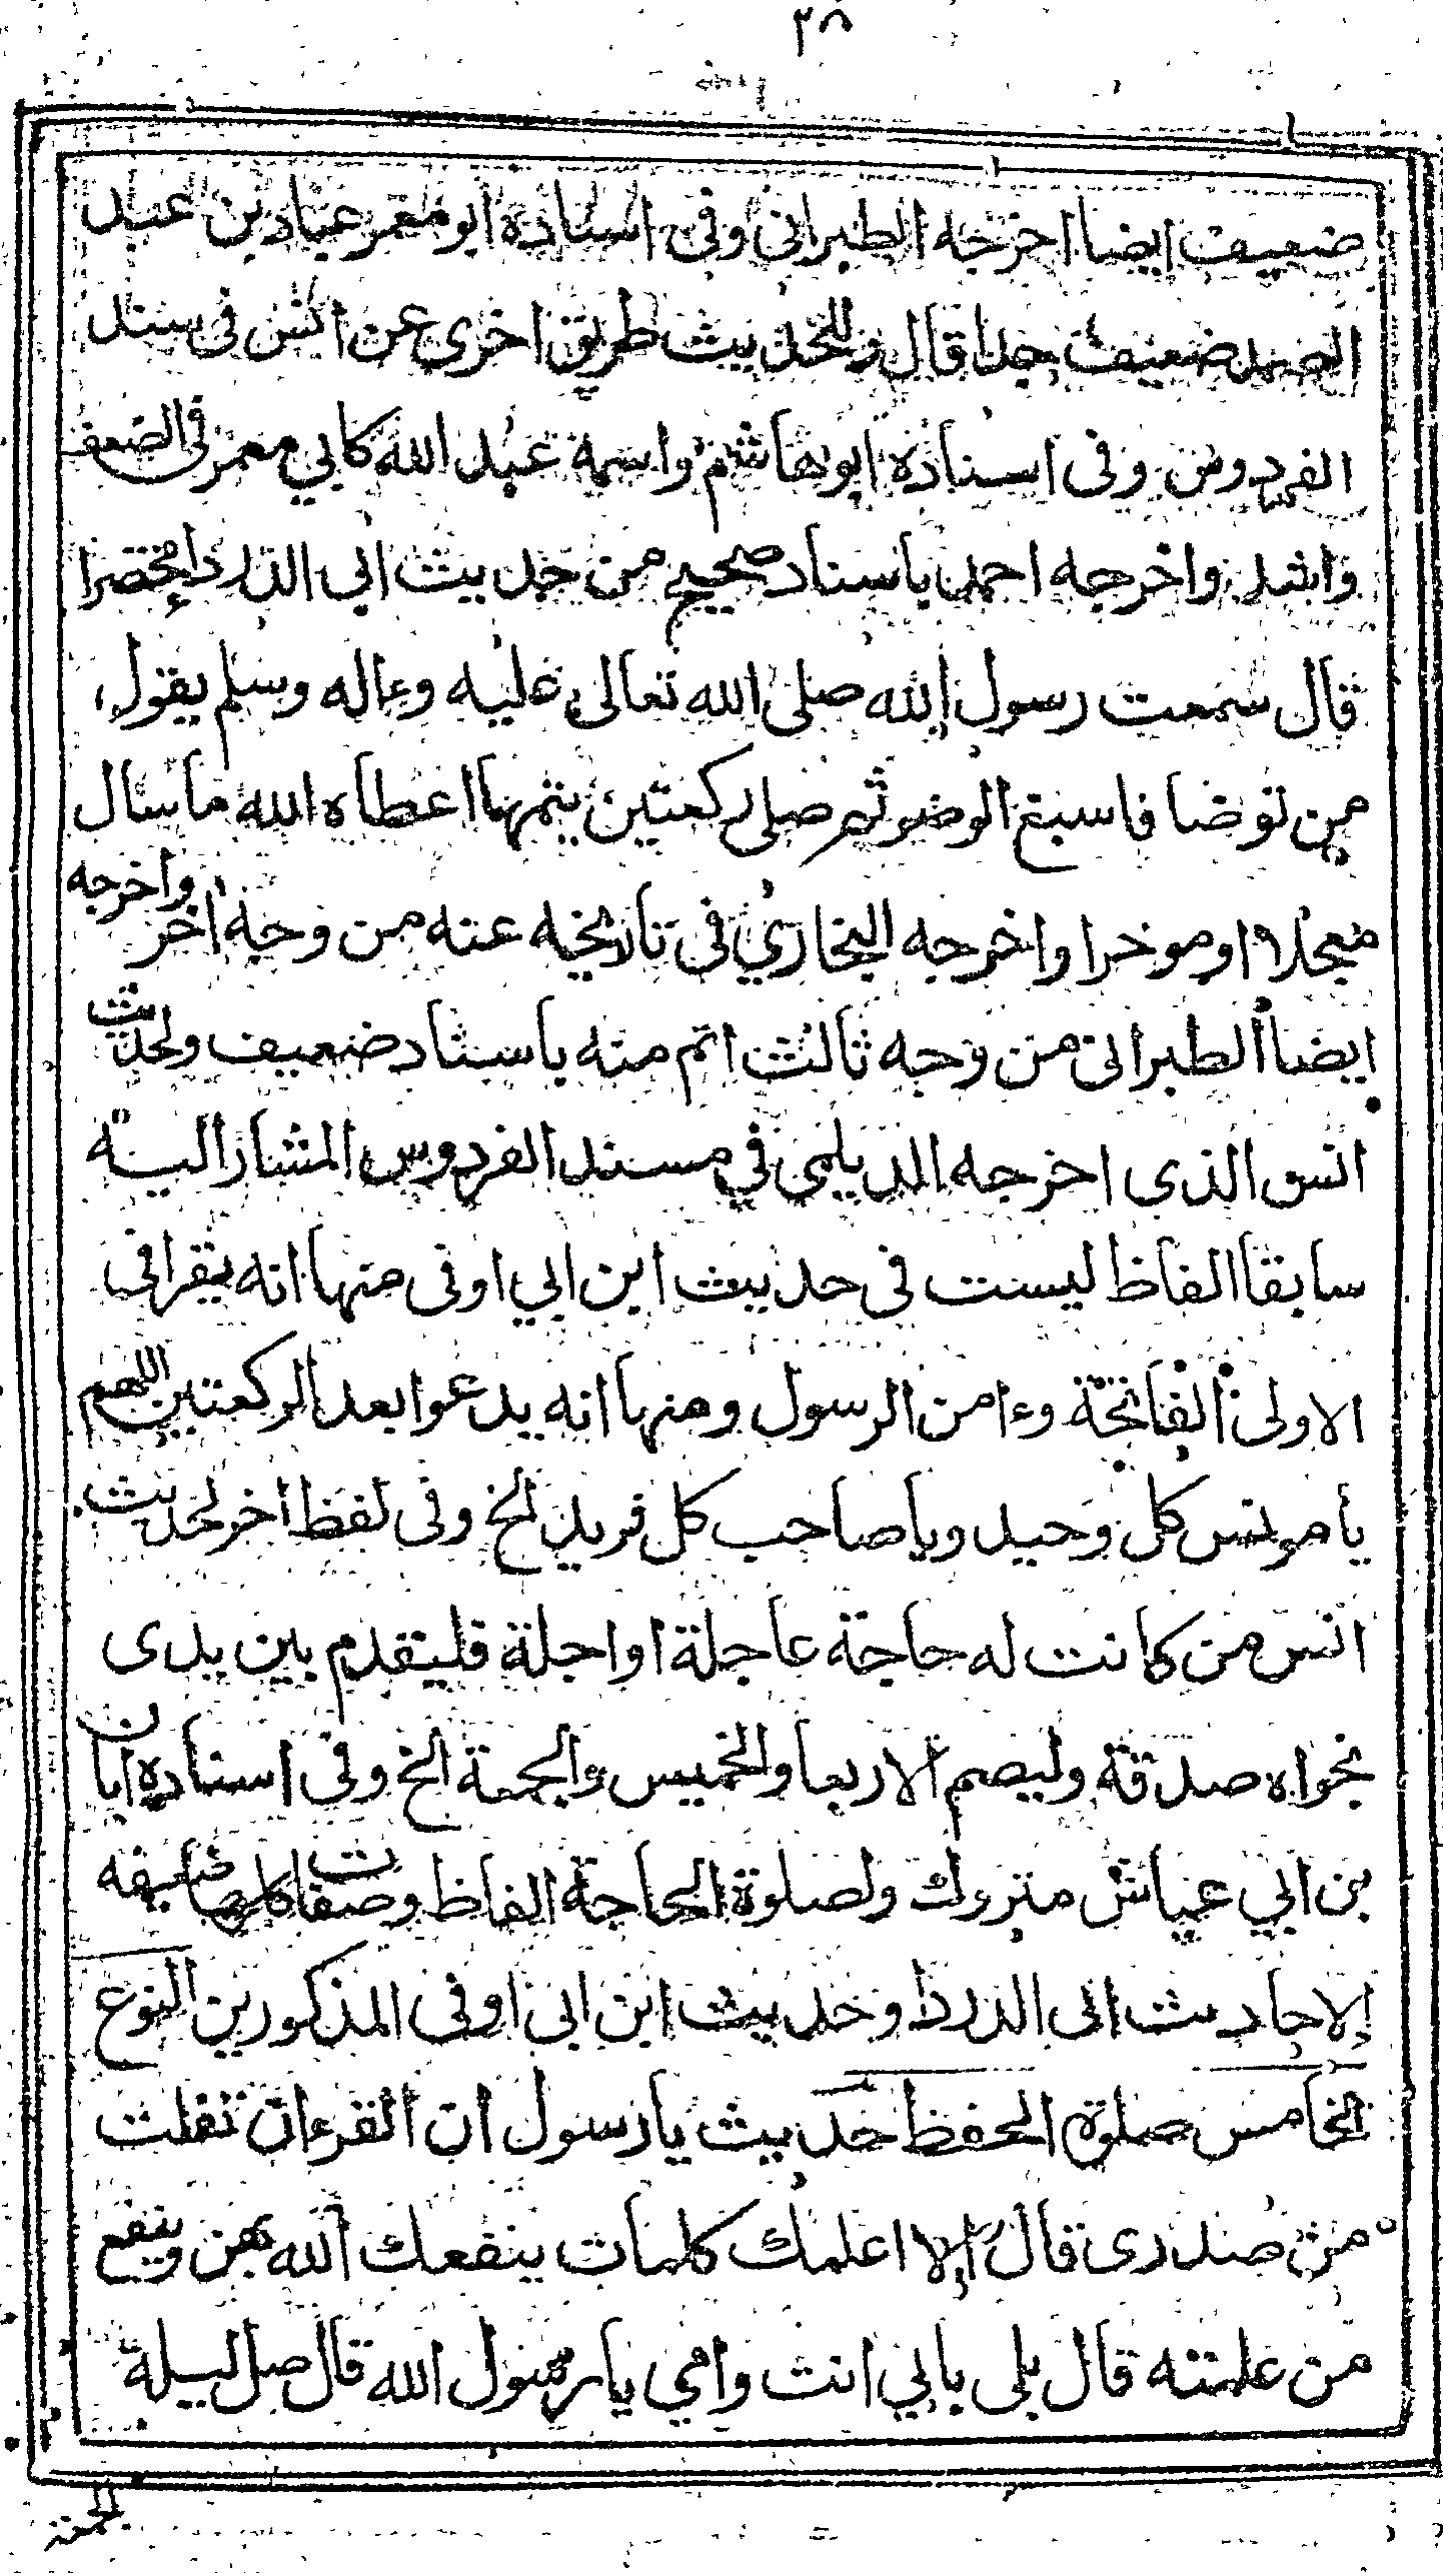 ٣٨
ضعيف ايضا اخرجه الطبرانى وفى اسناده ابو معمر عباد بن عبد
الصمد ضعيف جدا قال وللحديث طريق اخرى عن انس فى سند
الفردوس وفى اسناده ابو هاشم واسمه عبد الله كابي معمر فى الضعف
واشد واخرجه احمد باسناد صحيح من حديث ابى الدرداء مختصرا
قال سمعت رسول الله صلى الله تعالى عليه وءاله وسلم يقول
من توضا فاسبغ الوضو ثم صلى ركعتين يتمهما اعطاه الله ما سال
معجلا او موخرا واخرجه البخاري فى تاريخه عنه من وجه اخر واخرجه
ايضا الطبرانى من وجه ثالث اتم منه باسناد ضعيف ولحديث
انس الذى اخرجه الديلمى في مسند الفردوس المشار اليه
سابقا الفاظ ليست فى حديث ابن ابي اوفى منها انه يقرا في
الاولى الفاتحة وءامن الرسول ومنها انه يدعوا بعد الركعتين اللهم
يا مونس كل وحيد ويا صاحب كل فريد لخ وفى لفظ اخر لحديث
انس من كانت له حاجة عاجلة او اجلة فليتقدم بين يدى
نجواه صدقة وليصم الاربعا والخميس والجمعة الخ وفى اسناده ابان
بن ابي عياش متروك ولصلوة الحاجة الفاظ وصفات كلها ضعيفه
الا حاديث ابى الدردا وحديث ابن ابى اوفى المذكورين النوع
الخامس صلوة الحفظ حديث يا رسول ان القرءان تفلت
من صدرى قال الا اعلمك كلمات ينفعك الله بهن وينفع
من علمته قال بلى بابي انت وامي يا رسول الله قال صل ليلة
الجمعة